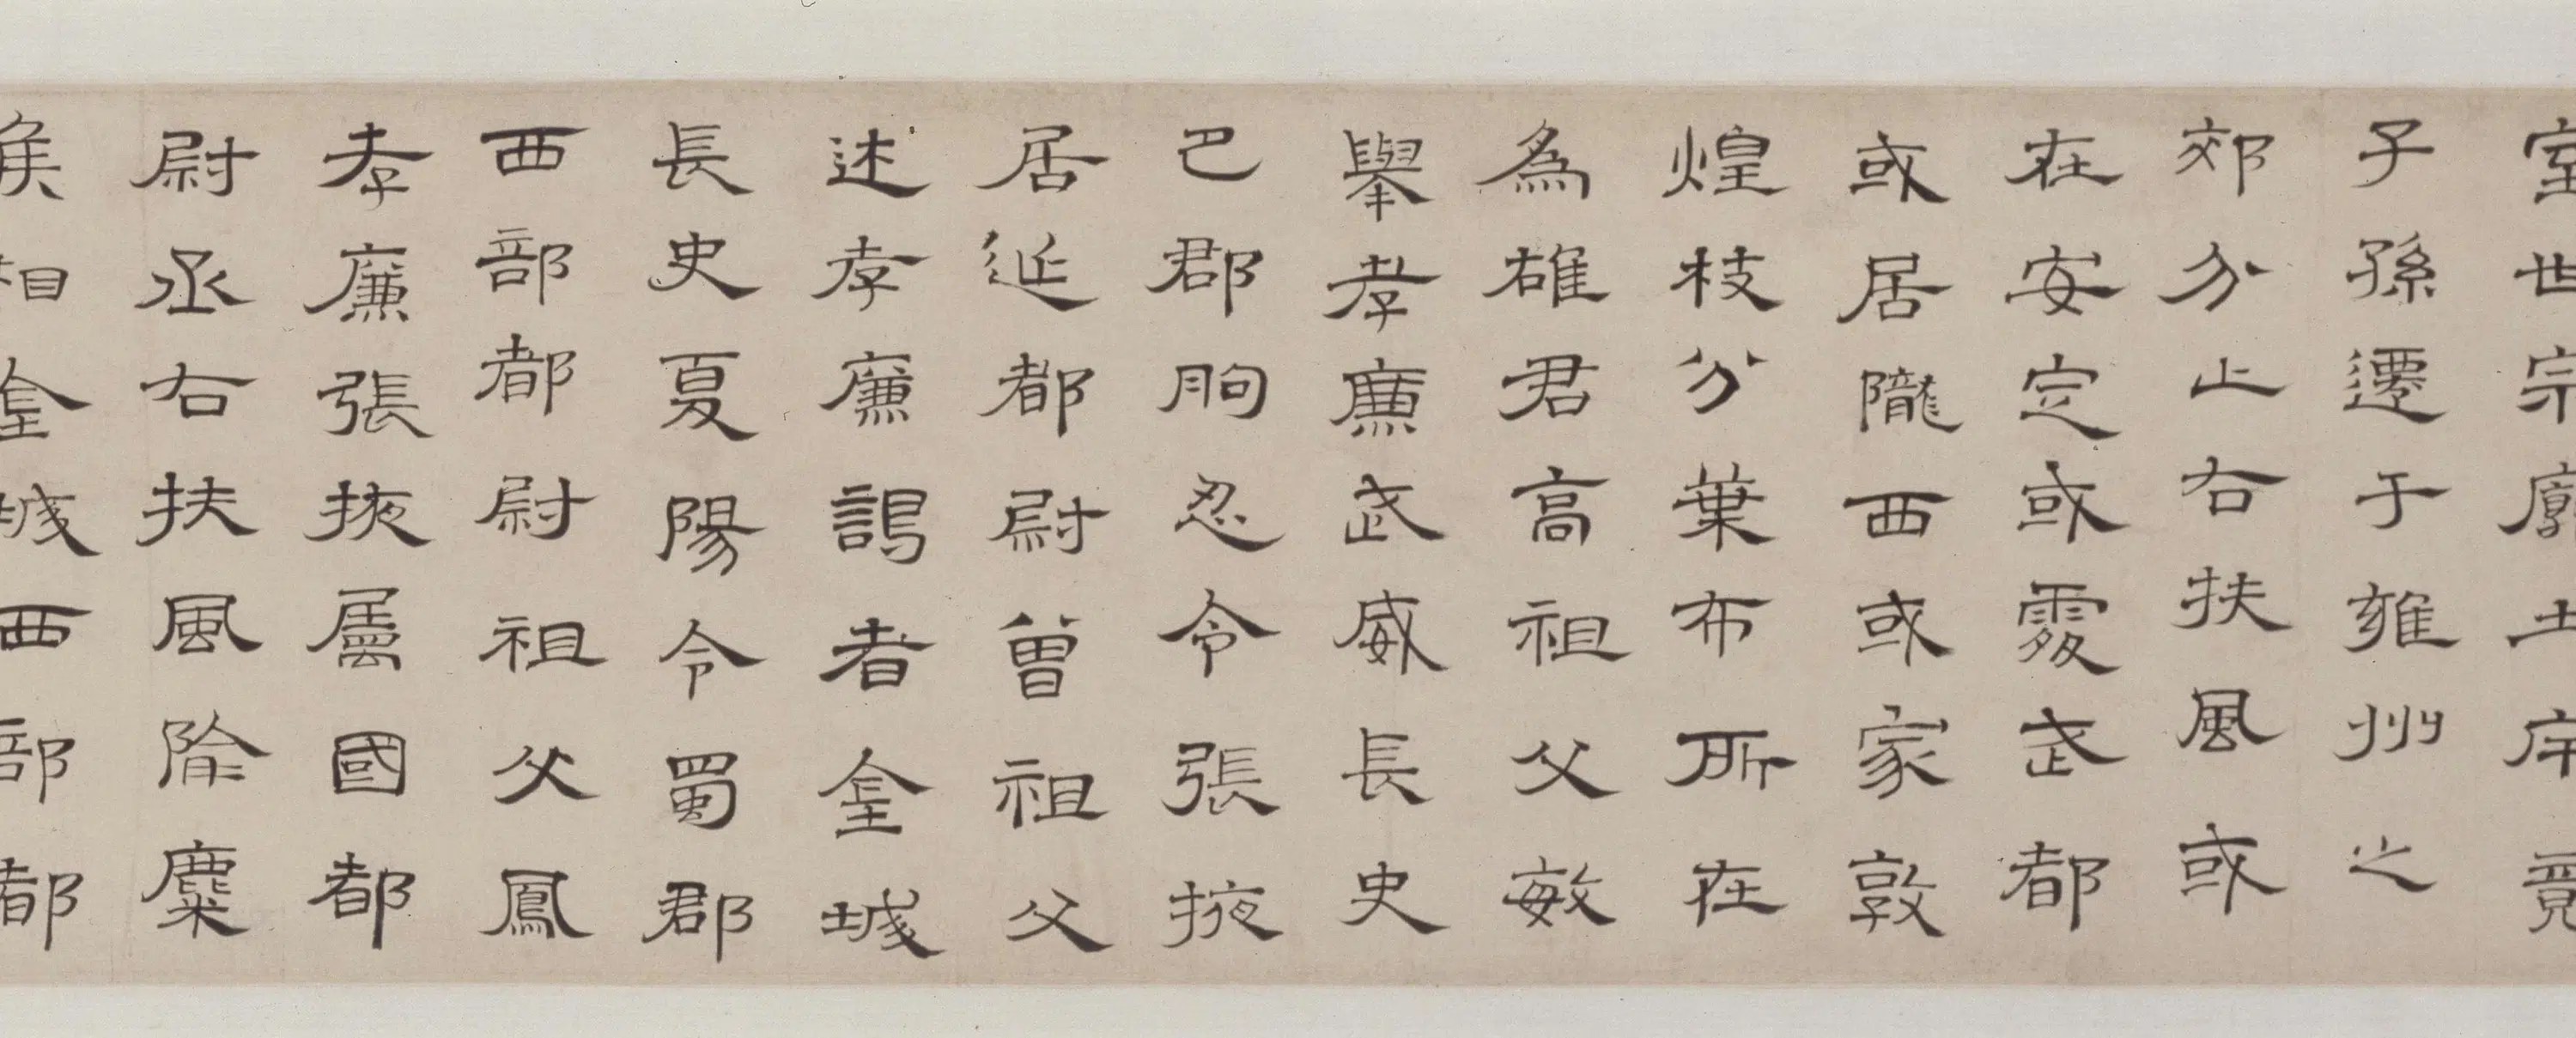 室世宗廓土斥竟
子孫遷于雍州之
郊分止右扶風或
在安定或處武都
或居隴西或家敦
煌枝分葉布所在
為雄君高祖父敏
舉孝廉武威長史
巴郡朐忍令張掖
居延都尉曾祖父
述孝廉謁者金城
長史夏陽令蜀郡
西部都尉祖父鳳
孝廉張掖屬國都
尉丞右扶風隃麋
侯相金城西部都